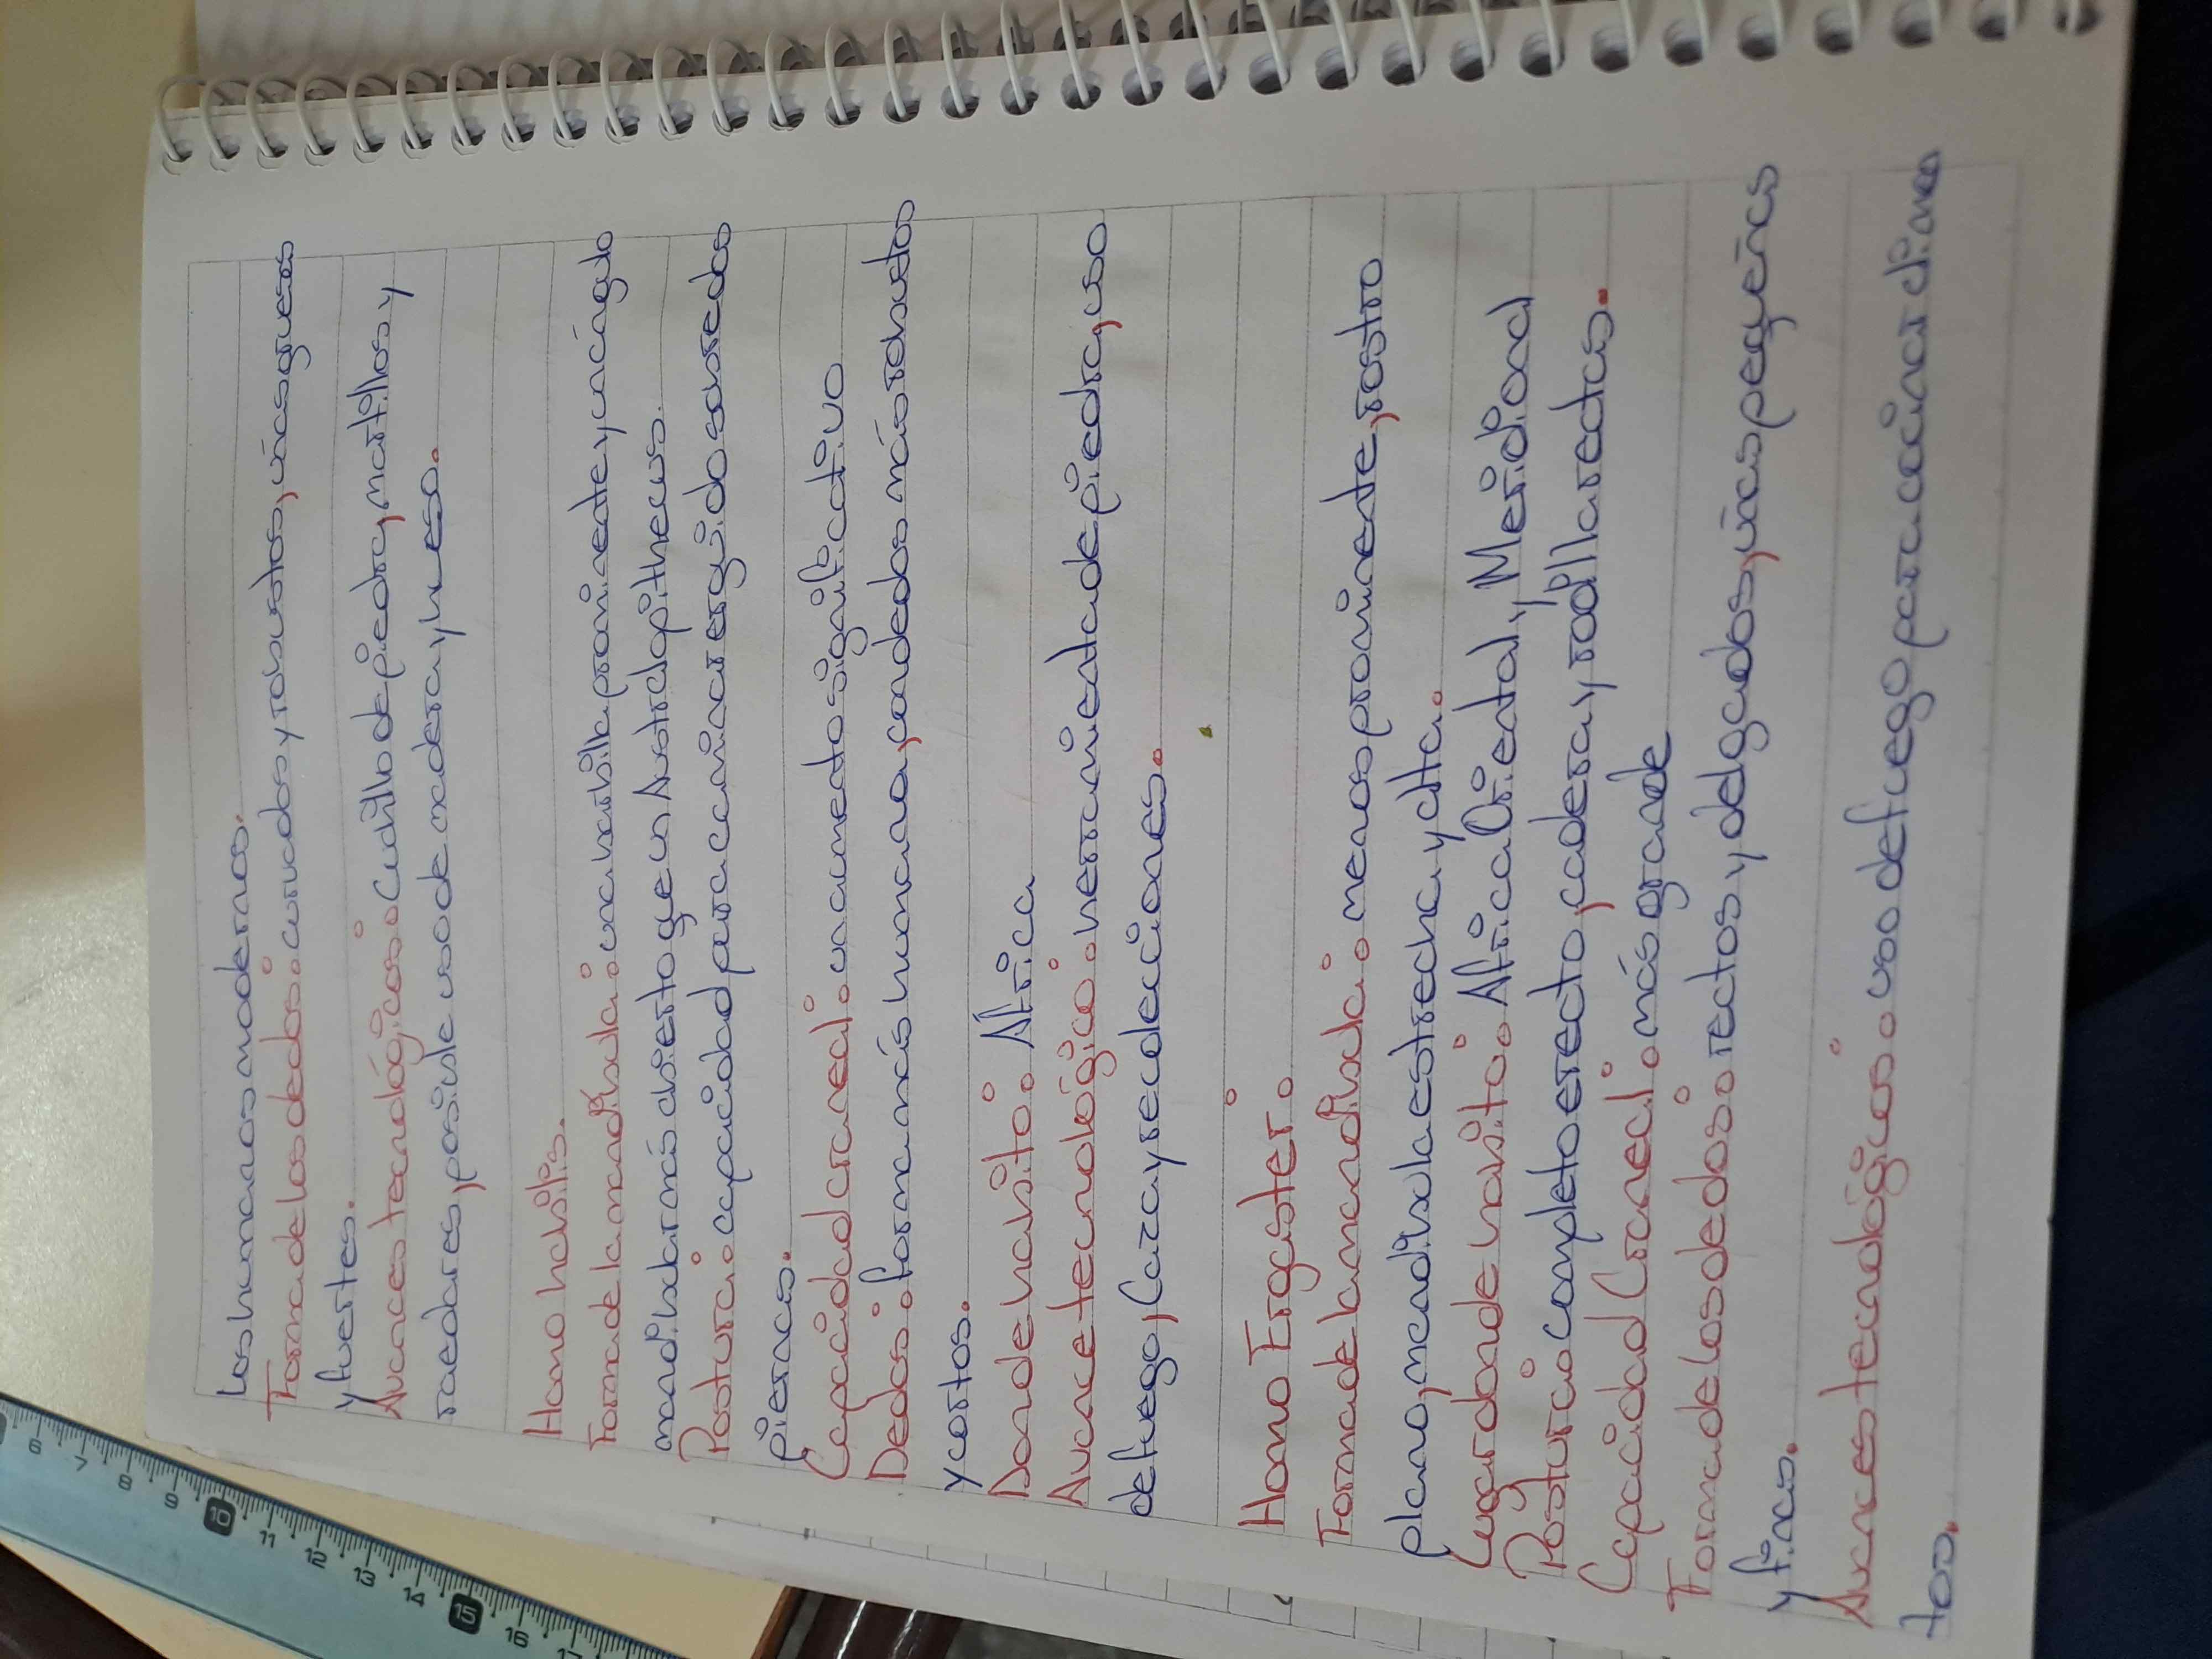 los humanos modernos.
Forma de los dedos: curvados y robustos, uñas gruesas
y fuertes.
Avances tecnológicos: Cuchillo de piedra, martillos y
raedores, posible uso de madera y hueso.
Homo habilis.
Forma de la mandíbula: una barbilla prominente y un ángulo
mandibular más abierto que un Australopithecus.
Postura: capacidad para caminar erguido sobre dos
piernas.
Capacidad craneal: un aumento significativo
Dedos: forma más humana, con dedos más robustos
y cortos.
Donde habito: África
Avance tecnológico: herramienta de piedra, uso
de fuego, Caza y recolecciones.
Homo Ergaster:
Forma de la mandíbula: menos prominente, rostro
plano, mandíbula estrecha y alta.
Lugar donde habito: África Oriental, y Meridional
Postura: completo erecto, cadera y rodilla rectas.
Capacidad Craneal: más grande
Forma de los dedos: rectos y delgados, uñas pequeñas
y finas.
Avances tecnológicos: uso de fuego para cocinar alimen
tos.
6 7 8 9 10 11 12 13 14 15 16 17